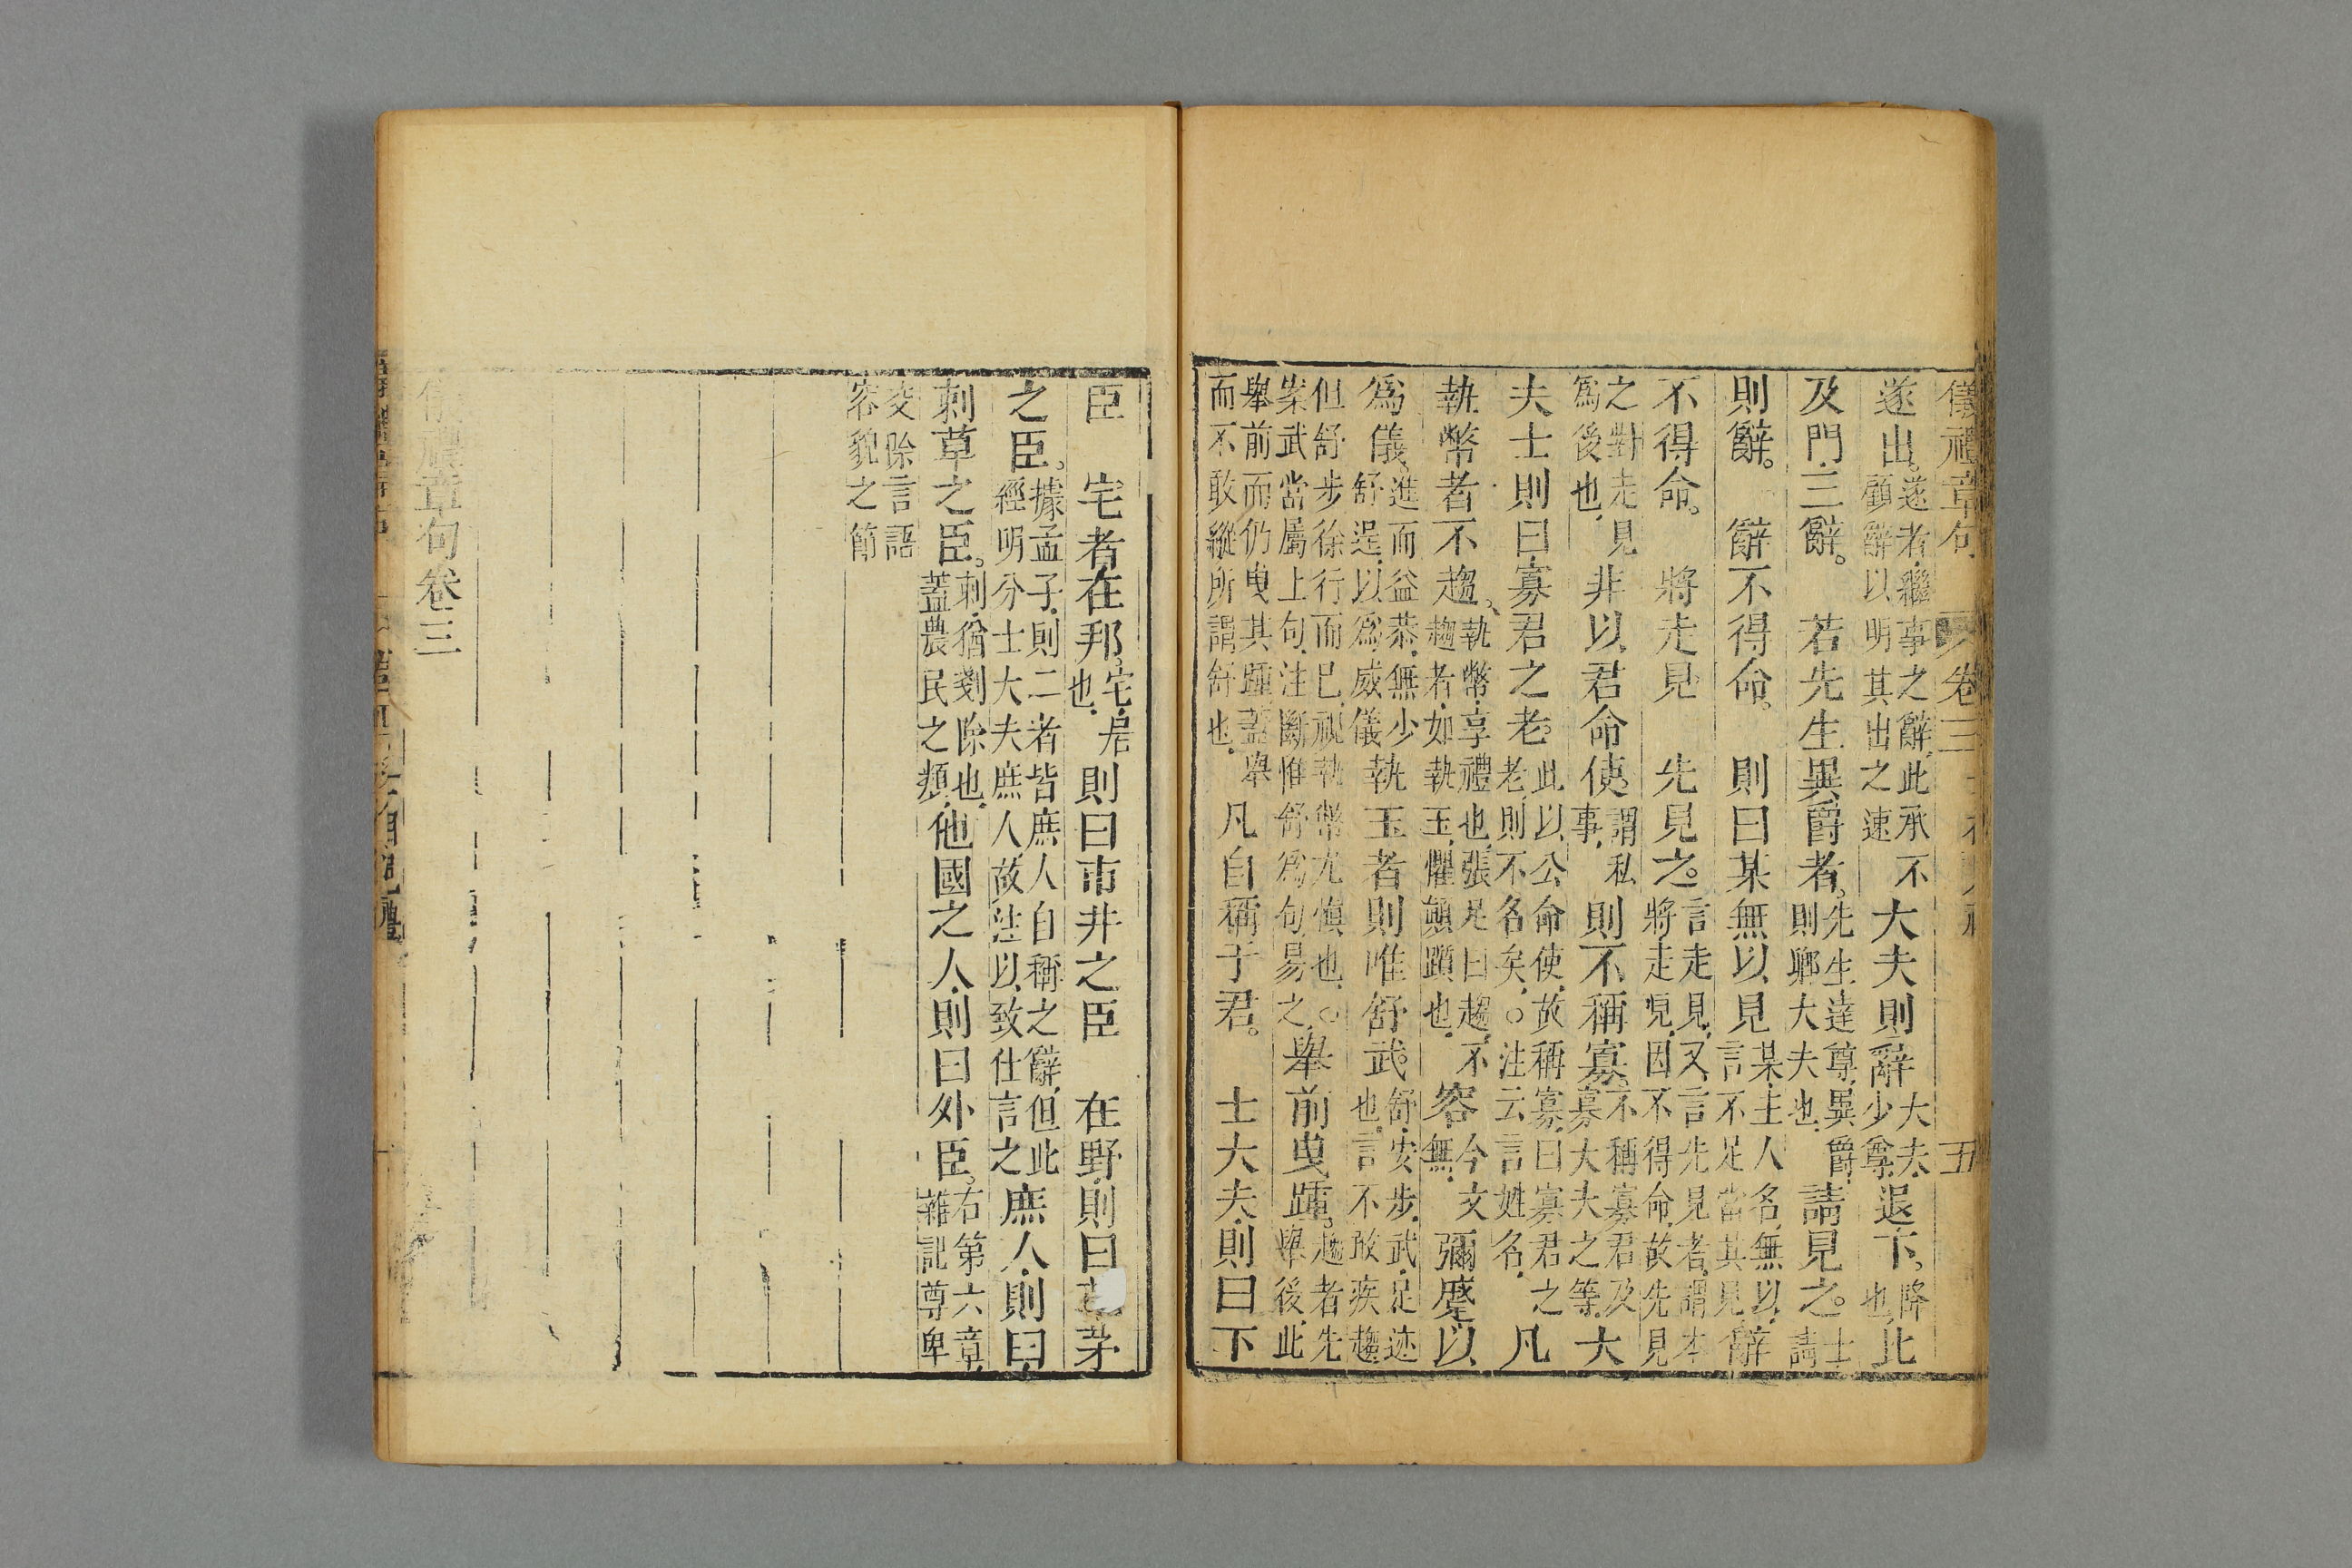 儀禮章句 卷三 五
遂出。遂者繼事之辭此承不顧辭以明其出之速大夫則辭大夫少尊退下降也比
及門三辭。若先生異爵者。先生達尊異爵則卿大夫也請見之。士請
則辭。辭不得命。則曰某無以見某主人名無以言不足當其見辭
不得命。將走見先見之。言走見又言先見者謂本將走見因不得命故先見
之對走見爲後也非以君命使。謂私事則不稱寡不稱寡君及寡大夫之等大
夫士則曰寡君之老。此以公命使故稱寡曰寡君之老則不名矣○注云言姓名凡
執幣者不趨執幣享禮也張足曰趨不趨者如執玉懼顛躓也容今文無彌蹙以
爲儀進而益恭無少舒逞以爲威儀執玉者則唯舒武舒安步武足迹也言不敢疾趨
但舒步徐行而已視執幣尤愼也○案武當屬上句注斷惟舒爲句易之舉前曳踵。趨者先舉後此
舉前而仍曳其踵蓋舉而不敢縱所謂舒也凡自稱于君。士大夫則曰下
臣 宅者在邦宅居也則曰市井之臣 在野則曰茅
之臣。據孟子則二者皆庶人自稱之辭但此經明分士大夫庶人故注以致仕言之庶人則曰
刺草之臣。刺猶剗除也蓋農民之類他國之人則曰外臣。右第六章雜記尊卑
交際言語容貌之節
儀禮章句卷三